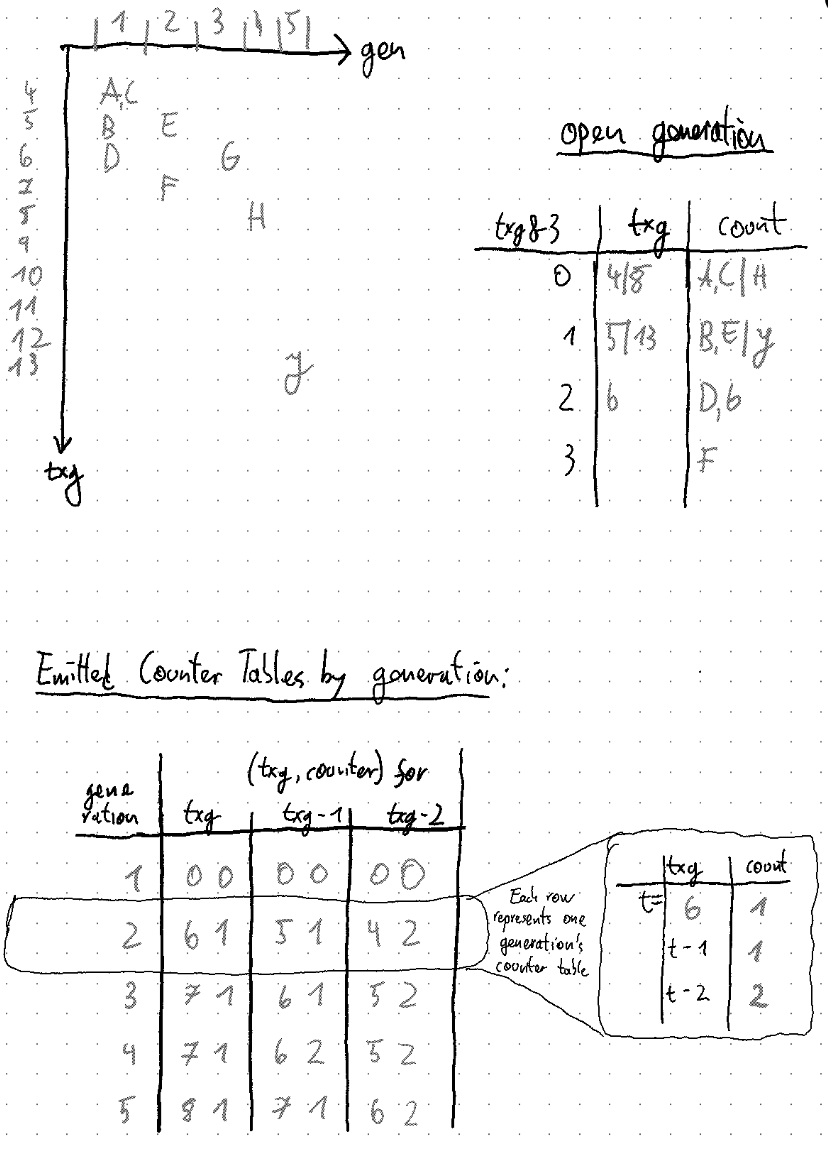 1 2 3 4 5
gen
4 A,C
5 B E
6 D G
7 F
8 H
9
10
11
12
13 y
txg
open generation
txg&3 txg count
0 4/8 A,C/H
1 5/13 B,E/y
2 6 D,6
3 F
Emitted Counter Tables by generation:
(txg, counter) for
gene
ration txg txg-1 txg-2
1 0 0 0 0 0 0
2 6 1 5 1 4 2
3 7 1 6 1 5 2
4 7 1 6 2 5 2
5 8 1 7 1 6 2
Each row
represents one
generation's
counter table
txg count
t= 6 1
t-1 1
t-2 2